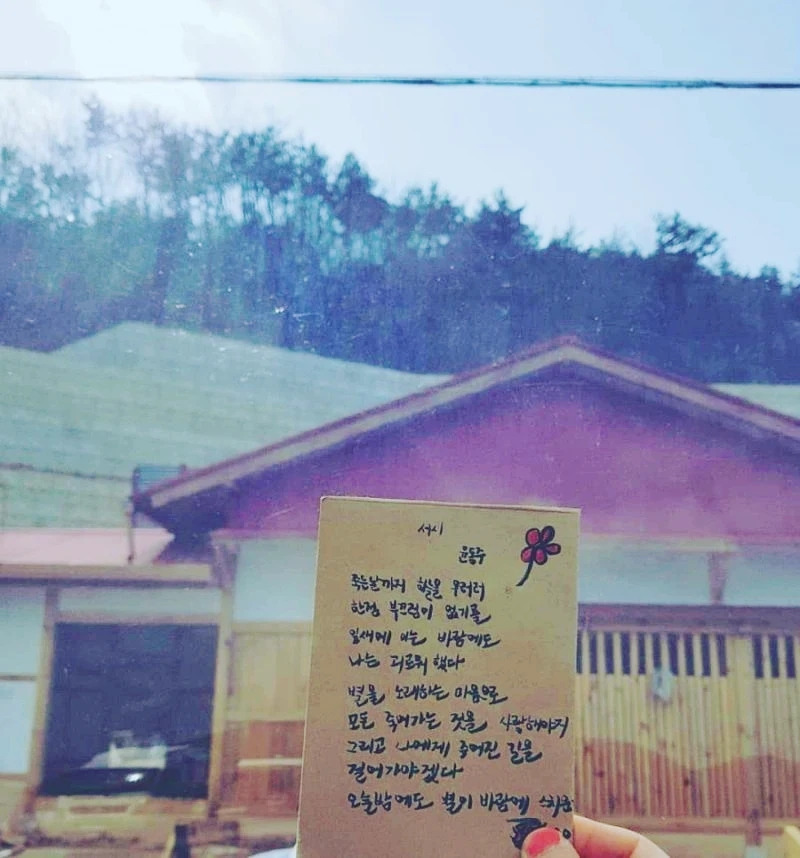 서시
윤동주
죽는날까지 하늘을 우러러
한점 부끄럼이 없기를
잎새에 이는 바람에도
나는 괴로워 했다
별을 노래하는 마음으로
모든 죽어가는 것을 사랑해야지
그리고 나에게 주어진 길을
걸어가야겠다
오늘밤에도 별이 바람에